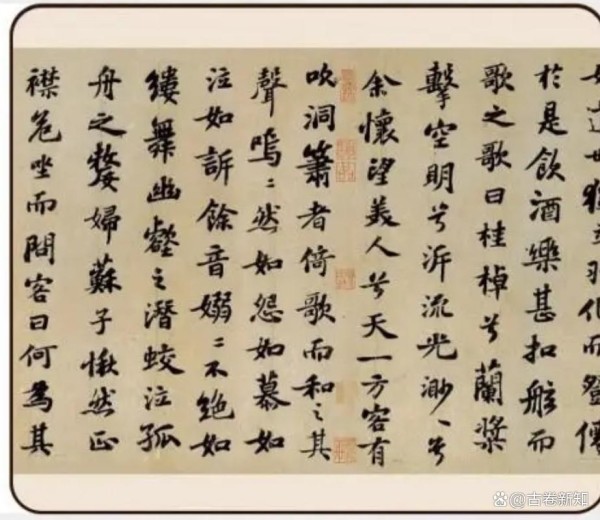 遺世獨立羽化而登僊
於是飲酒樂甚扣舷而
歌之歌曰桂棹兮蘭槳
擊空明兮泝流光渺〻兮
余懷望美人兮天一方客有
吹洞簫者倚歌而和之其
聲嗚〻然如怨如慕如
泣如訴餘音嫋〻不絶如
縷舞幽壑之潛蛟泣孤
舟之嫠婦蘇子愀然正
襟危坐而問客曰何為其
古卷新知